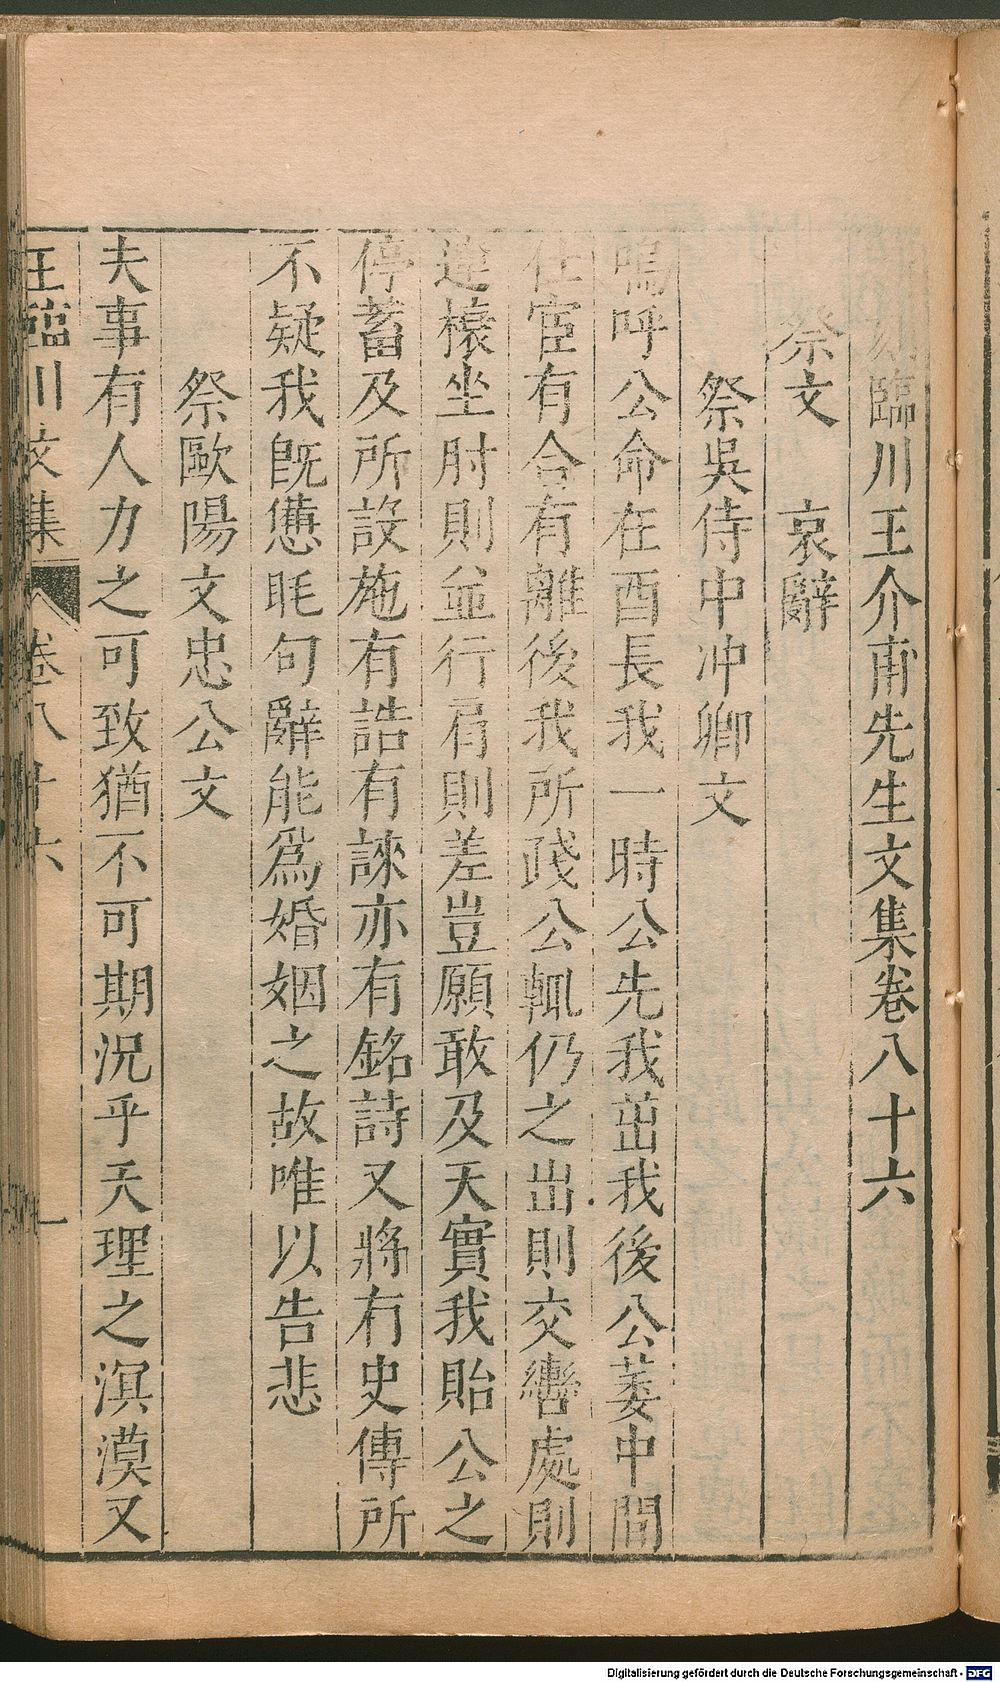 刻臨川王介甫先生文集卷八十六
祭文　哀辭
祭吳侍中冲卿文
嗚呼公命在酉長我一時公先我茁我後公萎中間
仕宦有合有離後我所踐公輒仍之出則交轡處則
連榱坐肘則並行肩則差豈願敢及天實我貽公之
停蓄及所設施有誥有誄亦有銘詩又將有史傳所
不疑我旣憊眊句辭能爲婚姻之故唯以告悲
祭歐陽文忠公文
夫事有人力之可致猶不可期況乎天理之溟漠又
王臨川文集　卷八十六　一
Digitalisierung gefördert durch die Deutsche Forschungsgemeinschaft - DFG